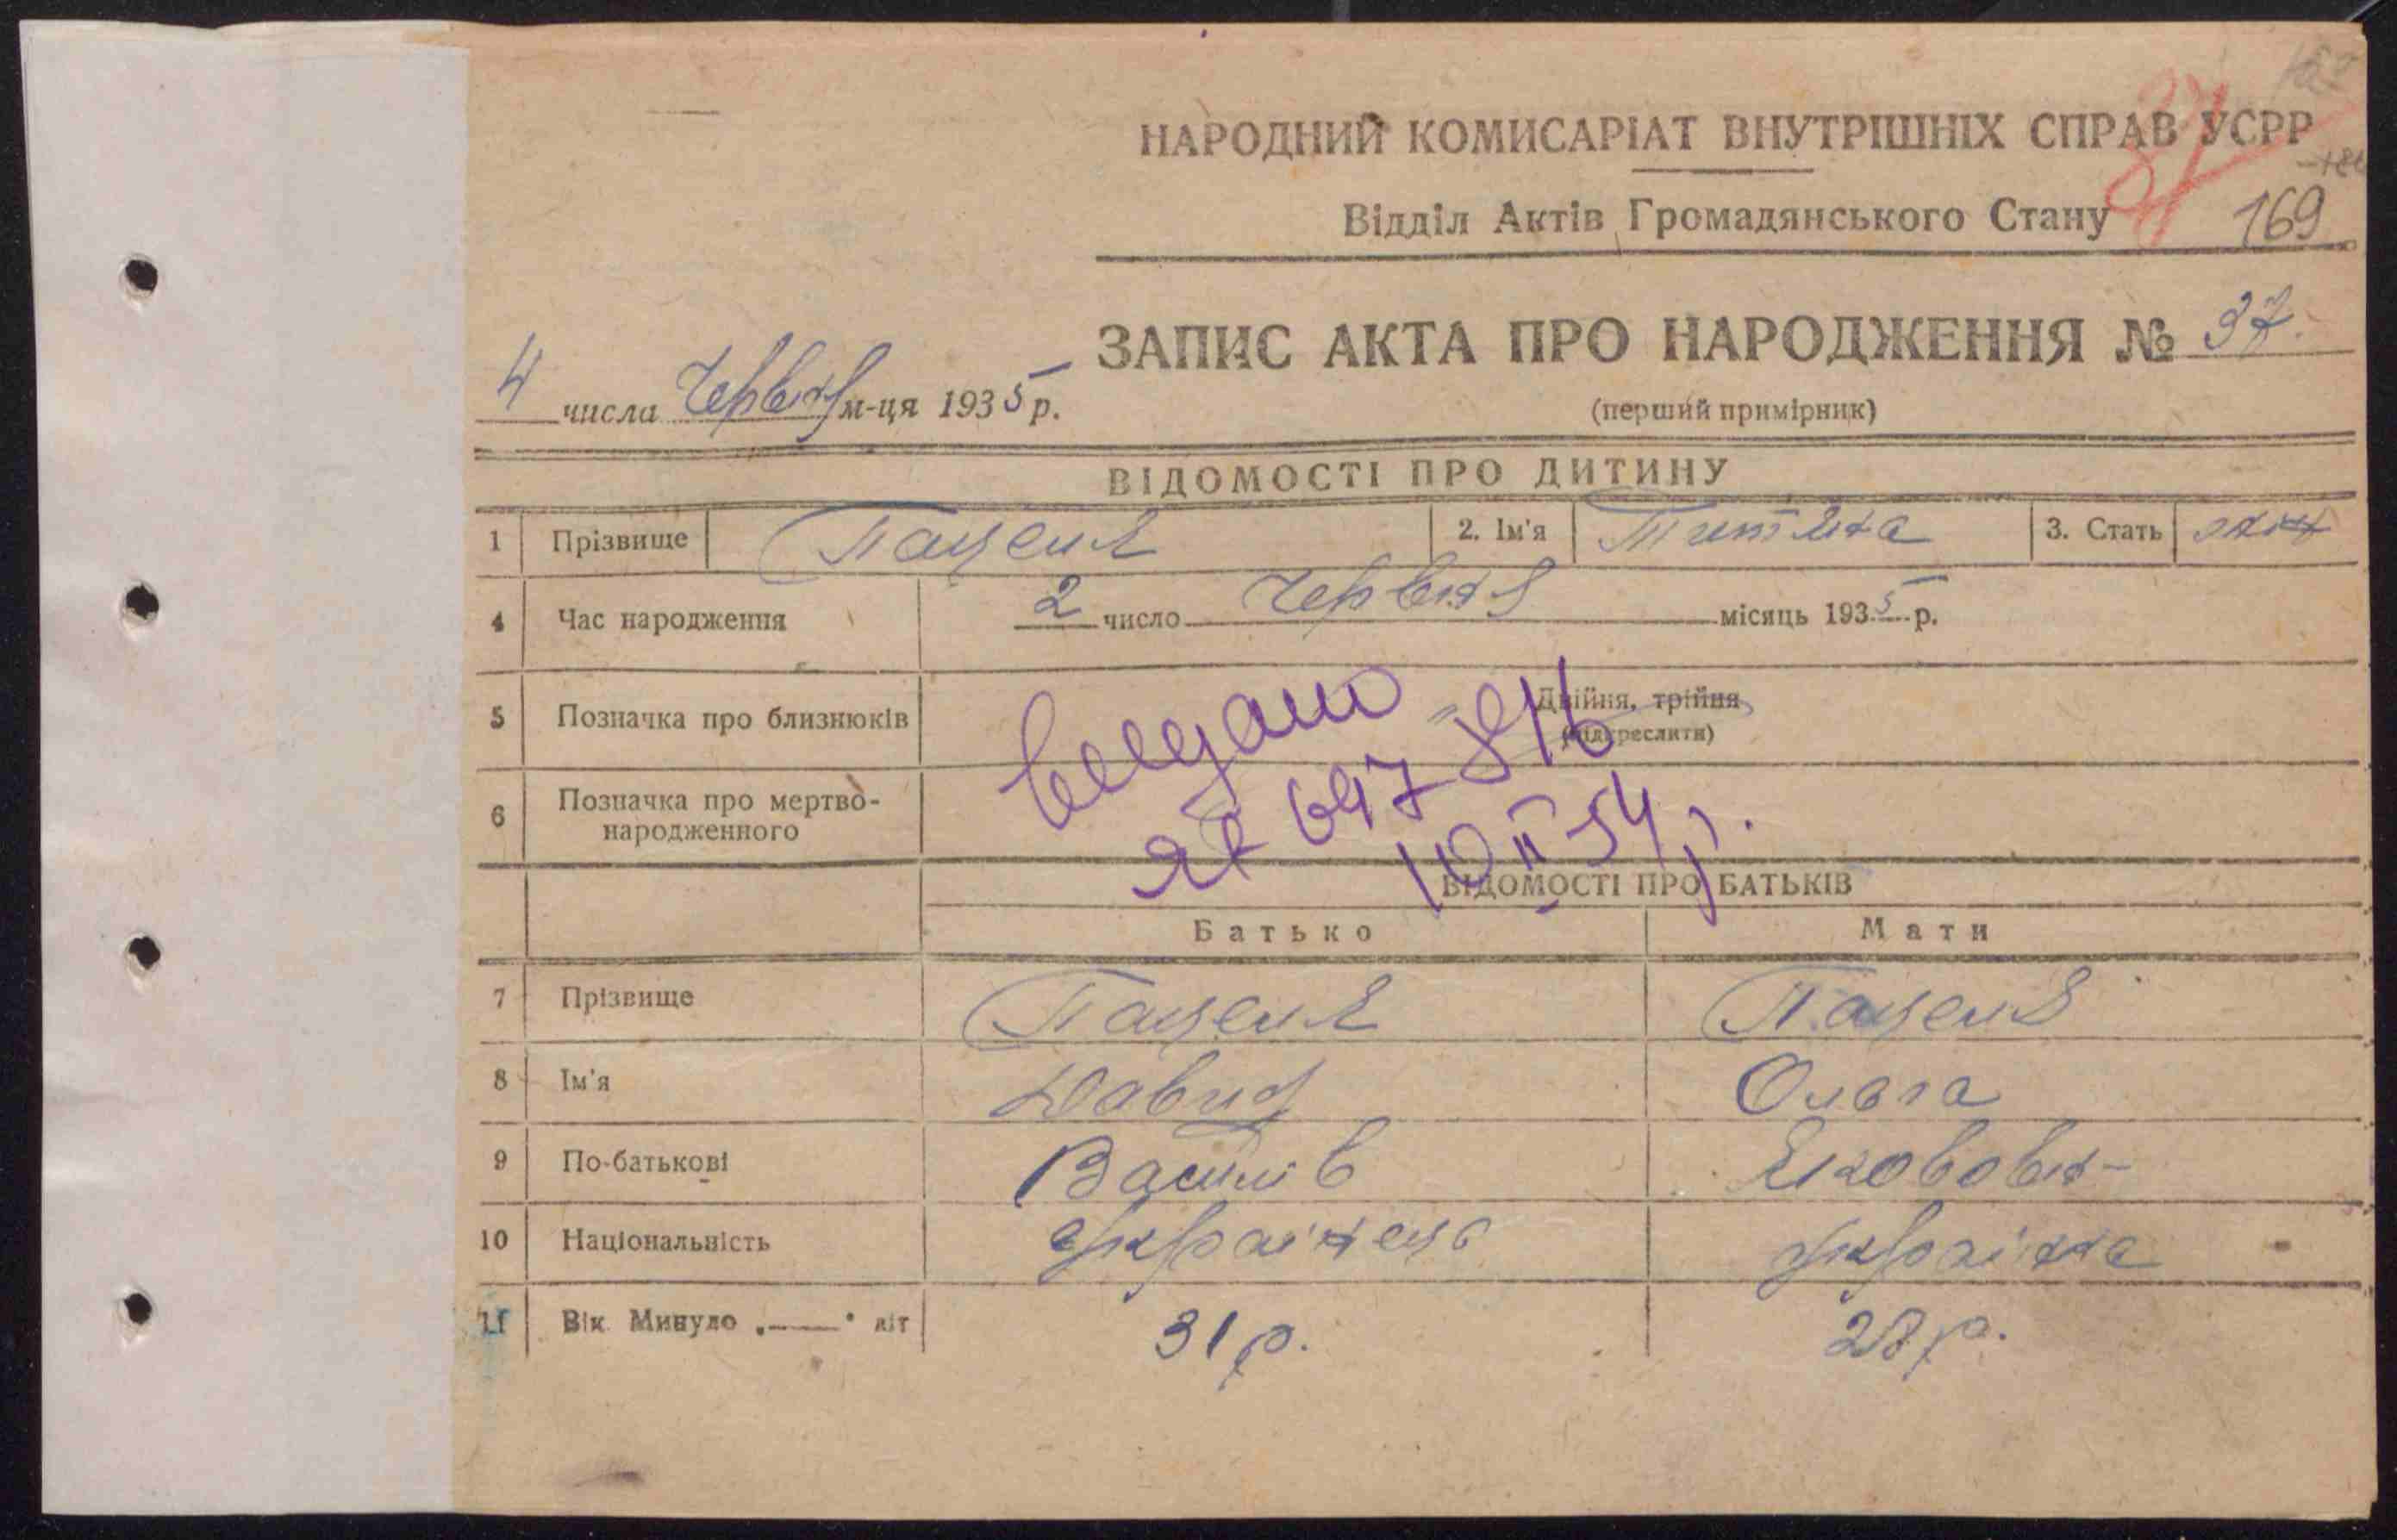 НАРОДНИЙ КОМИСАРІАТ ВНУТРІШНІХ СПРАВ УСРР
Відділ Актів Громадянського Стану
169
ЗАПИС АКТА ПРО НАРОДЖЕННЯ № 37.
4 числа Червня м-ця 1935 р.
(перший примірник)
ВІДОМОСТІ ПРО ДИТИНУ
1 Прізвище Пацеля 2. Ім'я 3. Стать
4 Час народження 2 число Червня місяць 1935 р.
5 Позначка про близнюків Двійня, трійня
(підкреслити)
6 Позначка про мертво-
народженного
видано
ЯР 697
10 II 54 р.
ВІДОМОСТІ ПРО БАТЬКІВ
Батько Мати
7 Прізвище Пацеля Пацеля
8 Ім'я Давид Ольга
9 По-батькові Василів Яковов-
10 Національність українець українка
11 Вік Минуло „——" літ 31 р. 28 р.